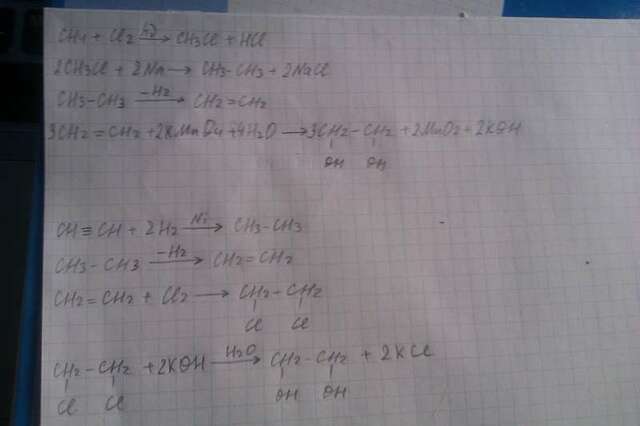 CH4 + Cl2 —hν→ CH3Cl + HCl
2CH3Cl + 2Na → CH3-CH3 + 2NaCl
CH3-CH3 —-H2→ CH2=CH2
3CH2=CH2 + 2KMnO4 + 4H2O → 3CH2-CH2 + 2MnO2 + 2KOH
OH OH
CH≡CH + 2H2 —Ni→ CH3-CH3
CH3-CH3 —-H2→ CH2=CH2
CH2=CH2 + Cl2 → CH2-CH2
Cl Cl
CH2-CH2 + 2KOH —H2O→ CH2-CH2 + 2KCl
Cl Cl OH OH